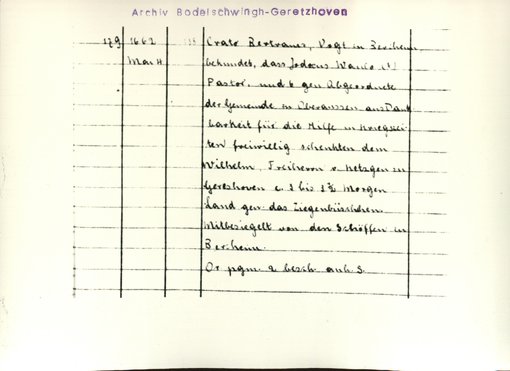 Archiv Bodelschwingh-Geretzhoven
179 1662 Crato Bertrams, Vogt in Berheim
Mai 4. bekundet, dass Jodocus (?)
Pastor, und 6 gen Abgeordnete
der Gemeinde in Oberaussem aus Dank
barkeit für die Hilfe in Kriegszei
ten freiwillig schenkten dem
Wilhelm, Freiherrn v. Hetzgen zu
Gereshoven c. 2 bis 2 ½ Morgen
Land gen. das Ziegenbüschchen.
Mitbesiegelt von den Schöffen in
Berheim.
Or pgm. 2 besch. anh. S.